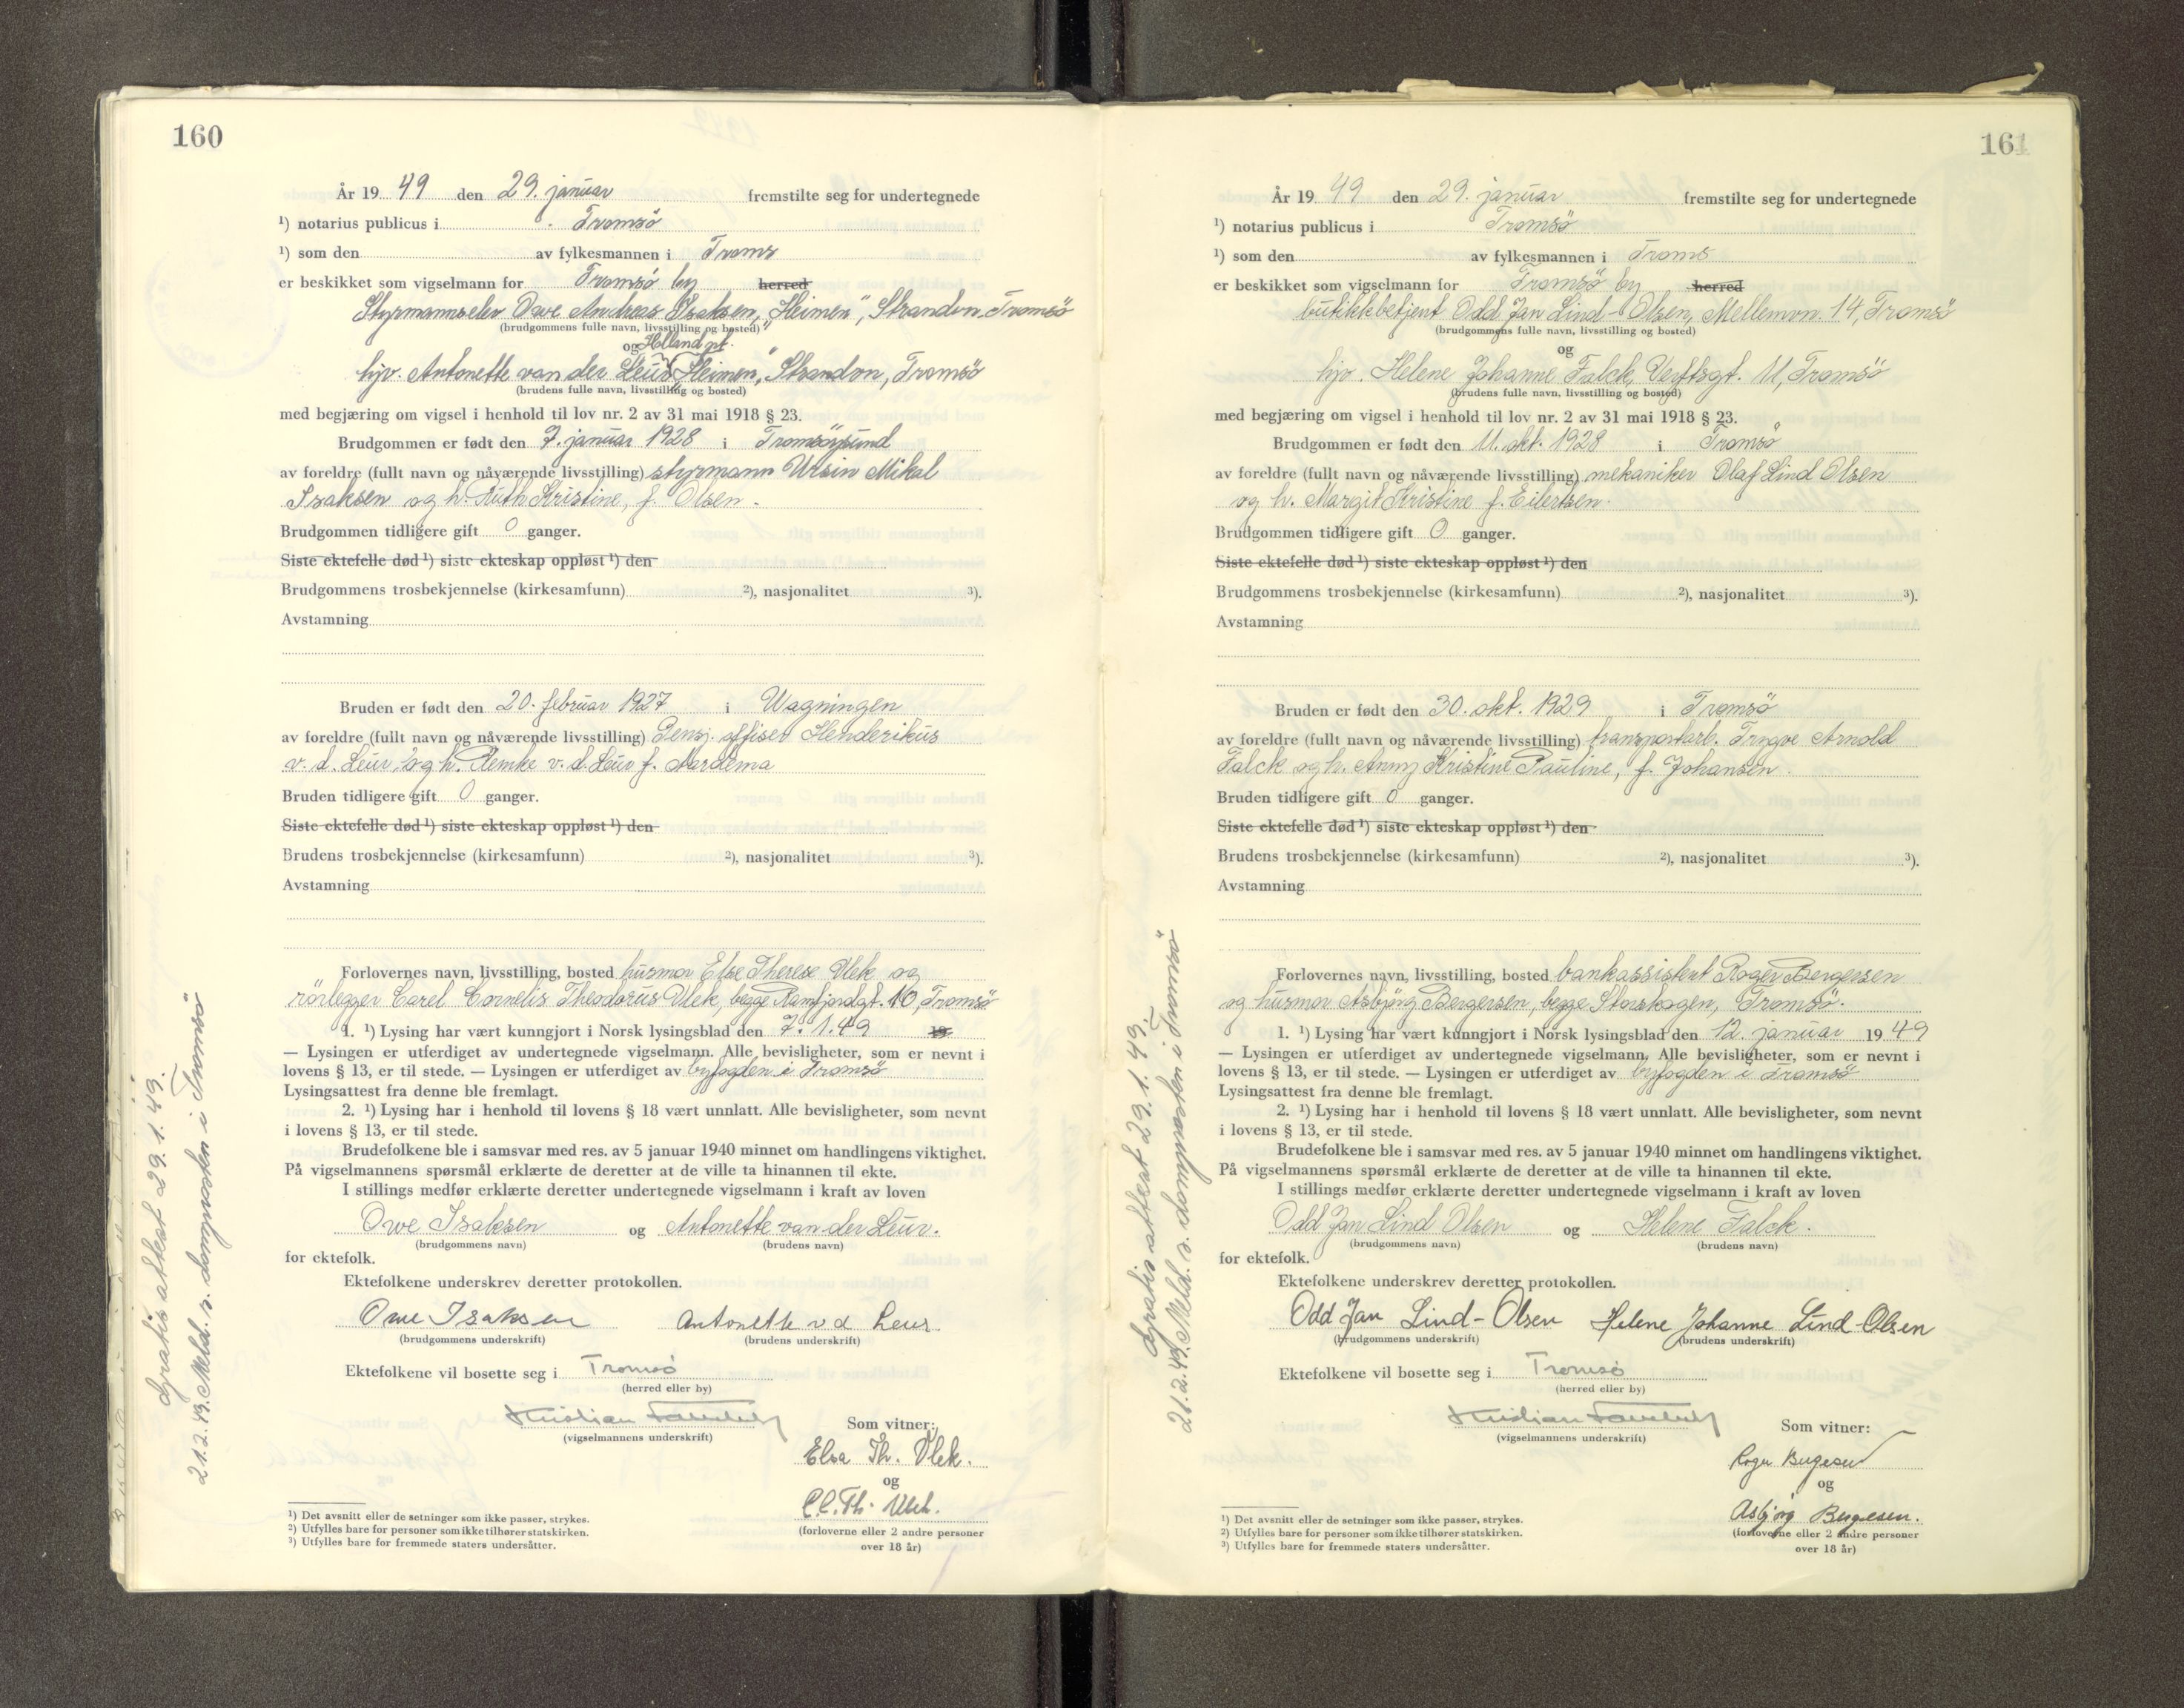 160
År 19 49 den 29. januar fremstilte seg for undertegnede
¹) notarius publicus i Tromsö
¹) som den av fylkesmannen i Troms
er beskikket som vigselmann for Tromsö by herred
Styrmannselev Owe Andreas Isaksen, "Heimen", Strandvn. Tromsö
(brudgommens fulle navn, livsstilling og bosted)
og Holland pt.
hjv. Antonette van der Leur "Heimen", Strandvn, Tromsö
(brudens fulle navn, livsstilling og bosted)
med begjæring om vigsel i henhold til lov nr. 2 av 31 mai 1918 § 23.
Brudgommen er født den 7. januar 1928 i Tromsöysund
av foreldre (fullt navn og nåværende livsstilling) styrmann Ursin Mikal
Isaksen og h. Ruth Kristine, f. Olsen.
Brudgommen tidligere gift 0 ganger.
Siste ektefelle død ¹) siste ekteskap oppløst ¹) den
Brudgommens trosbekjennelse (kirkesamfunn) ²), nasjonalitet ³).
Avstamning
Bruden er født den 20. februar 1927 i Wagningen
av foreldre (fullt navn og nåværende livsstilling) Pensj. offiser Henderikus
v. d. Leur, og h. Remke v. d. Leur f. Aardema
Bruden tidligere gift 0 ganger.
Siste ektefelle død ¹) siste ekteskap oppløst ¹) den
Brudens trosbekjennelse (kirkesamfunn) ²), nasjonalitet ³).
Avstamning
Forlovernes navn, livsstilling, bosted husmor Else Therese Vlek og
rörlegger Carel Cornelis Theodorus Vlek, begge Ramfjordgt. 10, Tromsö
1. ¹) Lysing har vært kunngjort i Norsk lysingsblad den 7. 1. 49 19
— Lysingen er utferdiget av undertegnede vigselmann. Alle bevisligheter, som er nevnt i
lovens § 13, er til stede. — Lysingen er utferdiget av byfogden i Tromsö
Lysingsattest fra denne ble fremlagt.
2. ¹) Lysing har i henhold til lovens § 18 vært unnlatt. Alle bevisligheter, som nevnt
i lovens § 13, er til stede.
Brudefolkene ble i samsvar med res. av 5 januar 1940 minnet om handlingens viktighet.
På vigselmannens spørsmål erklærte de deretter at de ville ta hinannen til ekte.
I stillings medfør erklærte deretter undertegnede vigselmann i kraft av loven
Owe Isaksen og Antonette van der Leur.
(brudgommens navn) (brudens navn)
for ektefolk.
Ektefolkene underskrev deretter protokollen.
Owe Isaksen Antonette v d Leur
(brudgommens underskrift) (brudens underskrift)
Ektefolkene vil bosette seg i Tromsö
(herred eller by)
Kristian
(vigselmannens underskrift)
Som vitner:
Elsa Th. Vlek.
og
C.C.Th. Vlek.
(forloverne eller 2 andre personer
over 18 år)
¹) Det avsnitt eller de setninger som ikke passer, strykes.
²) Utfylles bare for personer som ikke tilhører statskirken.
³) Utfylles bare for fremmede staters undersåtter.
Gratis attest 29.1.49.
21.2.49. Meld. s. domprosten i Tromsö
161
År 19 49 den 29. januar fremstilte seg for undertegnede
¹) notarius publicus i Tromsö
¹) som den av fylkesmannen i Troms
er beskikket som vigselmann for Tromsö by herred
butikkbetjent Odd Jan Lind-Olsen, Mellemvn. 14, Tromsö
(brudgommens fulle navn, livsstilling og bosted)
og
hjv. Helene Johanne Falck, Verftsgt. 11, Tromsö
(brudens fulle navn, livsstilling og bosted)
med begjæring om vigsel i henhold til lov nr. 2 av 31 mai 1918 § 23.
Brudgommen er født den 11. okt. 1928 i Tromsö
av foreldre (fullt navn og nåværende livsstilling) mekaniker Olaf Lind Olsen
og h. Margit Kristine f. Eilertsen.
Brudgommen tidligere gift 0 ganger.
Siste ektefelle død ¹) siste ekteskap oppløst ¹) den
Brudgommens trosbekjennelse (kirkesamfunn) ²), nasjonalitet ³).
Avstamning
Bruden er født den 30. okt. 1929 i Tromsö
av foreldre (fullt navn og nåværende livsstilling) transportarb. Trygve Arnold
Falck og h. Anny Kristine Pauline, f. Johansen.
Bruden tidligere gift 0 ganger.
Siste ektefelle død ¹) siste ekteskap oppløst ¹) den
Brudens trosbekjennelse (kirkesamfunn) ²), nasjonalitet ³).
Avstamning
Forlovernes navn, livsstilling, bosted bankassistent Roger Bergersen
og husmor Asbjörg Bergersen, begge Storskogen, Tromsö.
1. ¹) Lysing har vært kunngjort i Norsk lysingsblad den 12. januar 19 49
— Lysingen er utferdiget av undertegnede vigselmann. Alle bevisligheter, som er nevnt i
lovens § 13, er til stede. — Lysingen er utferdiget av byfogden i Tromsö
Lysingsattest fra denne ble fremlagt.
2. ¹) Lysing har i henhold til lovens § 18 vært unnlatt. Alle bevisligheter, som nevnt
i lovens § 13, er til stede.
Brudefolkene ble i samsvar med res. av 5 januar 1940 minnet om handlingens viktighet.
På vigselmannens spørsmål erklærte de deretter at de ville ta hinannen til ekte.
I stillings medfør erklærte deretter undertegnede vigselmann i kraft av loven
Odd Jan Lind Olsen og Helene Falck.
(brudgommens navn) (brudens navn)
for ektefolk.
Ektefolkene underskrev deretter protokollen.
Odd Jan Lind-Olsen Helene Johanne Lind-Olsen
(brudgommens underskrift) (brudens underskrift)
Ektefolkene vil bosette seg i Tromsö
(herred eller by)
Kristian
(vigselmannens underskrift)
Som vitner:
Roger Bergesen
og
Asbjörg Bergesen.
(forloverne eller 2 andre personer
over 18 år)
¹) Det avsnitt eller de setninger som ikke passer, strykes.
²) Utfylles bare for personer som ikke tilhører statskirken.
³) Utfylles bare for fremmede staters undersåtter.
Gratis attest 29.1.49.
21.2.49. Meld. s. domprosten i Tromsö